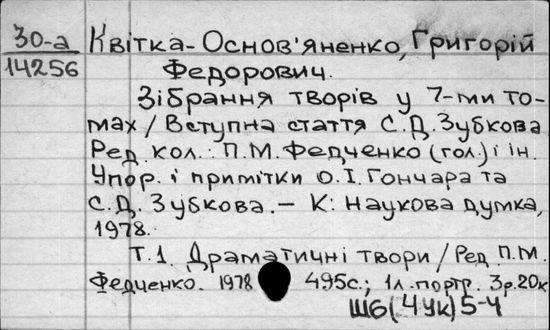 30-а Квітка-Основ'яненко, Григорій
14256 Федорович.
Зібрання творів у 7-ми то-
мах / Вступна стаття С.Д. Зубкова
Ред. кол.: П.М. Федченко (гол.) і ін.
Упор. і примітки О.І. Гончара та
С.Д. Зубкова. – К: Наукова думка,
1978.
Т.1. Драматичні твори / Ред. П.М.
Федченко. 1978 495с.; 1л. портр. 3р.20к
Ш6(4Ук)5-4